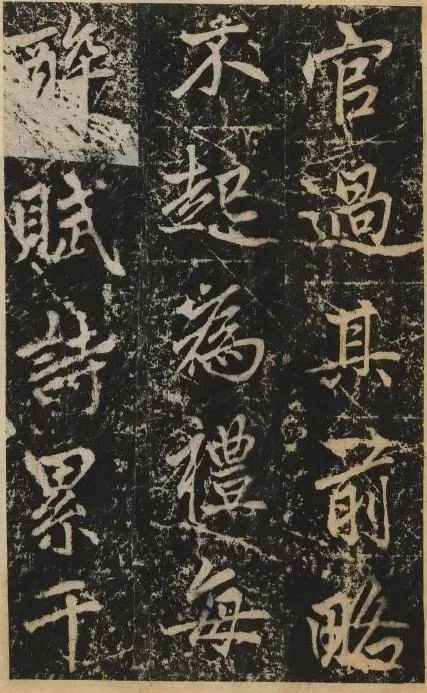 官過其前略
不起為禮每
醉賦詩累千